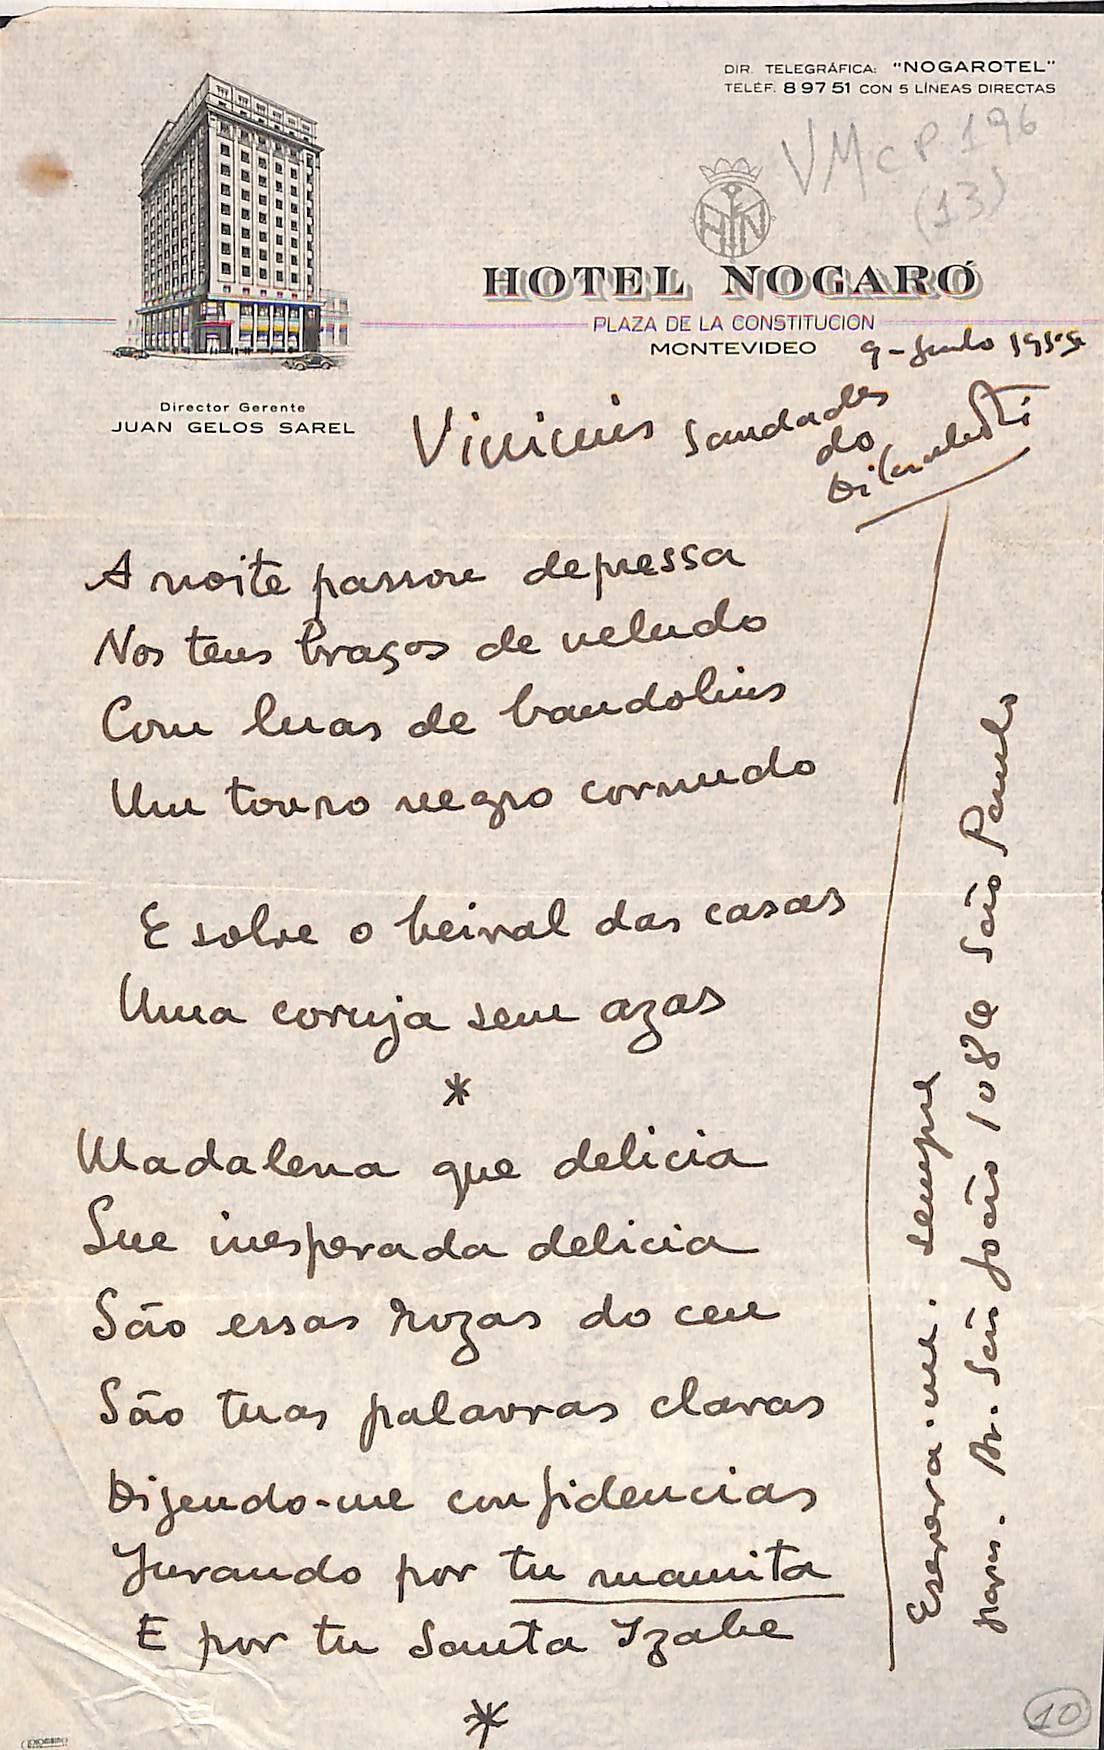 DIR. TELEGRÁFICA: "NOGAROTEL"
TELÉF. 8 97 51 CON 5 LÍNEAS DIRECTAS
VMcP 196
(13)
HOTEL NOGARÓ
PLAZA DE LA CONSTITUCION
MONTEVIDEO
Director Gerente
JUAN GELOS SAREL
Vinicius saudades
do
Di Cavalcanti
A noite passou depressa
Nos teus braços de veludo
Com luas de bandolins
Um touro negro cornudo
E sobre o beiral das casas
Uma coruja sem azas
*
Madalena que delicia
Que inesperada delicia
São essas rozas do ceu
São tuas palavras claras
Dizendo-me confidencias
Jurando por tu mamita
E por tu Santa Izabe
*
Escreva-me. sempre
para. Av. São João 108 São Paulo
10